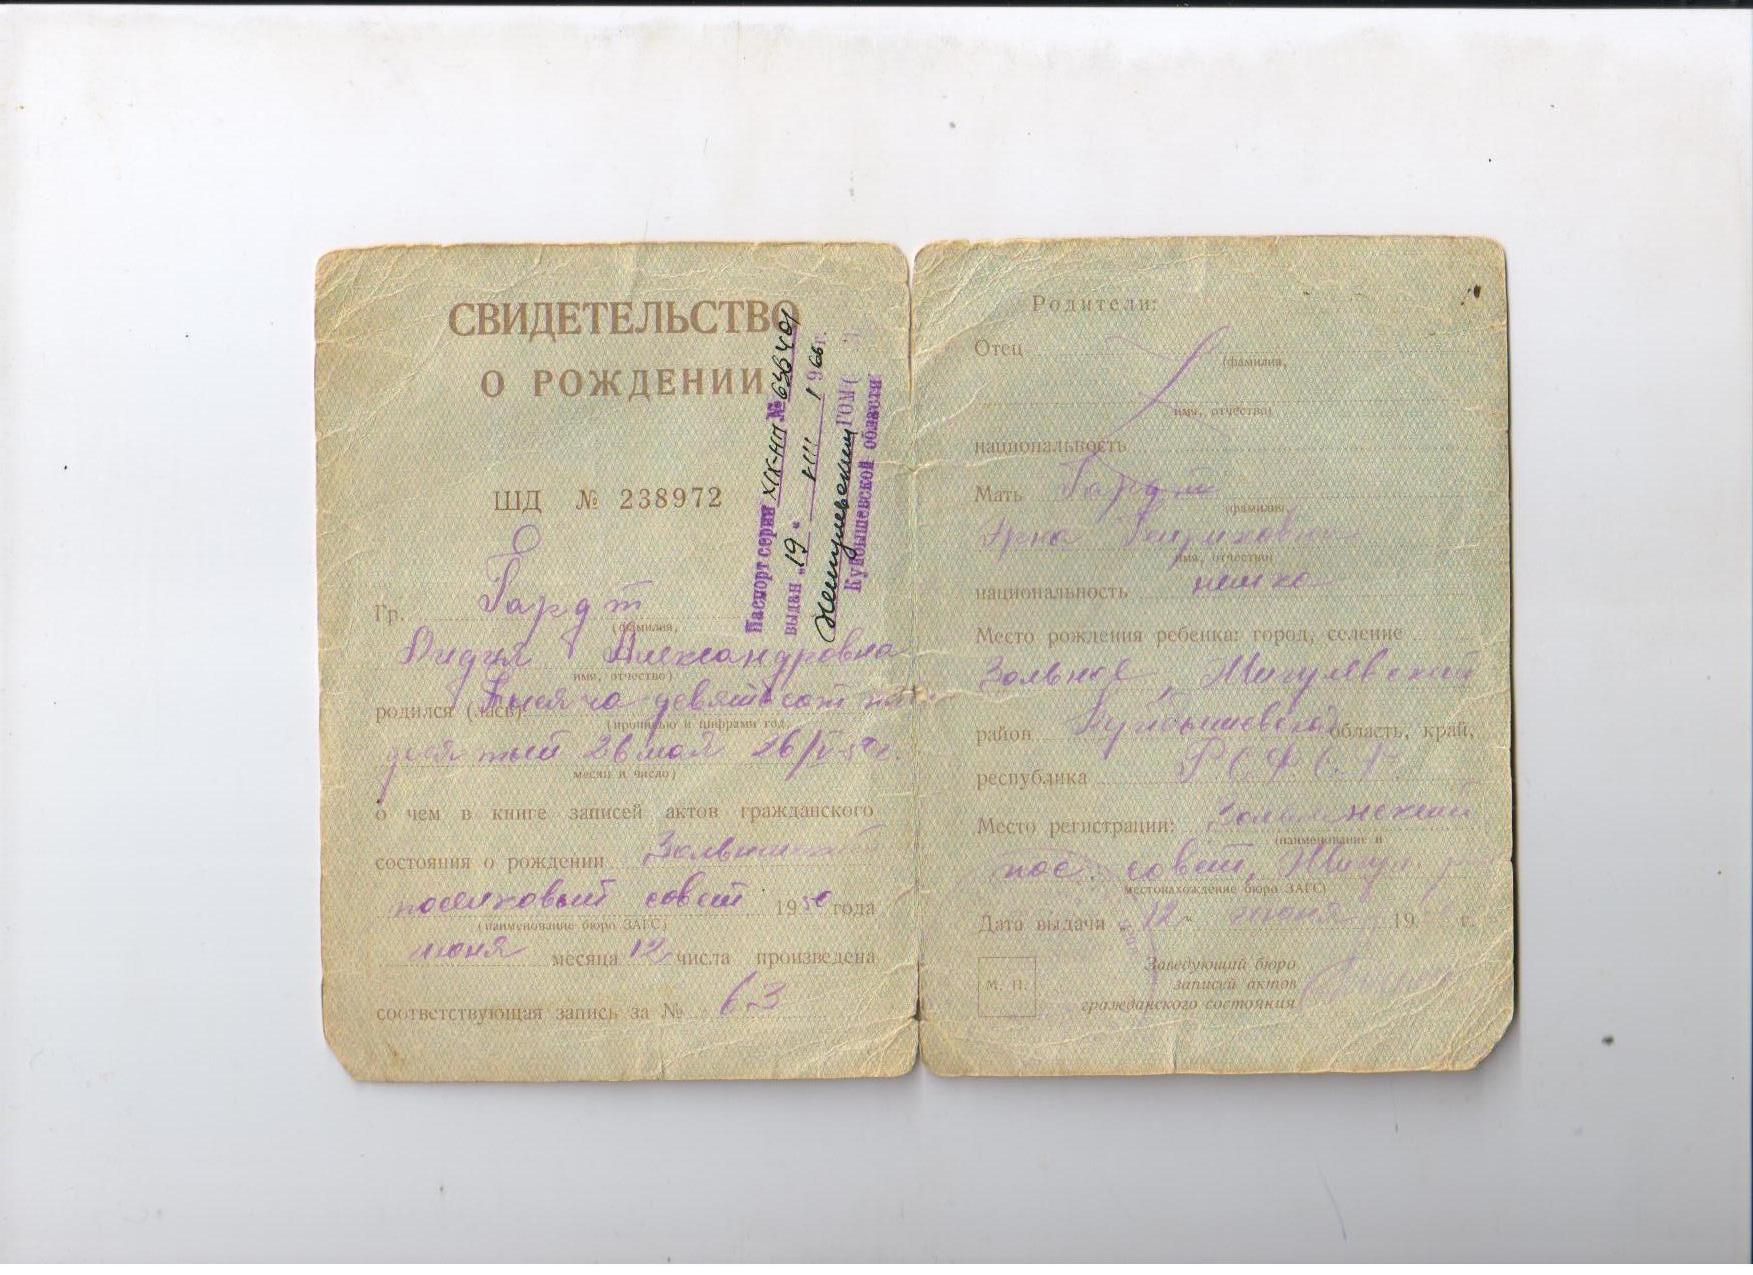 СВИДЕТЕЛЬСТВО
О РОЖДЕНИИ
ШД № 238972
Гр. Гардт
(фамилия,
Лидия Александровна
имя, отчество)
родился (лась) Тысяча девятьсот
(прописью и цифрами год,
десятый 26 мая 26/V-50г.
месяц и число)
о чем в книге записей актов гражданского
состояния о рождении Зольненский
поселковый совет 1950 года
(наименование бюро ЗАГС)
июня месяца 12 числа произведена
соответствующая запись за № 63
Паспорт серии № 638401
выдан „19“ VIII 1966 г.
Жигулевским ГОМ
Куйбышевской области
Родители:
Отец
(фамилия,
имя, отчество)
национальность
Мать Гардт
(фамилия,
Эрна Генриховна
имя, отчество)
национальность немка
Место рождения ребенка: город, селение
Зольное, Жигулевский
район Куйбышевская область, край,
республика Р.С.Ф.С.Р.
Место регистрации: Зольненский
(наименование и
пос. совет, Жигул.
местонахождение бюро ЗАГС)
Дата выдачи „12“ июня 19 г.
М. П.
Заведующий бюро
записей актов
гражданского состояния